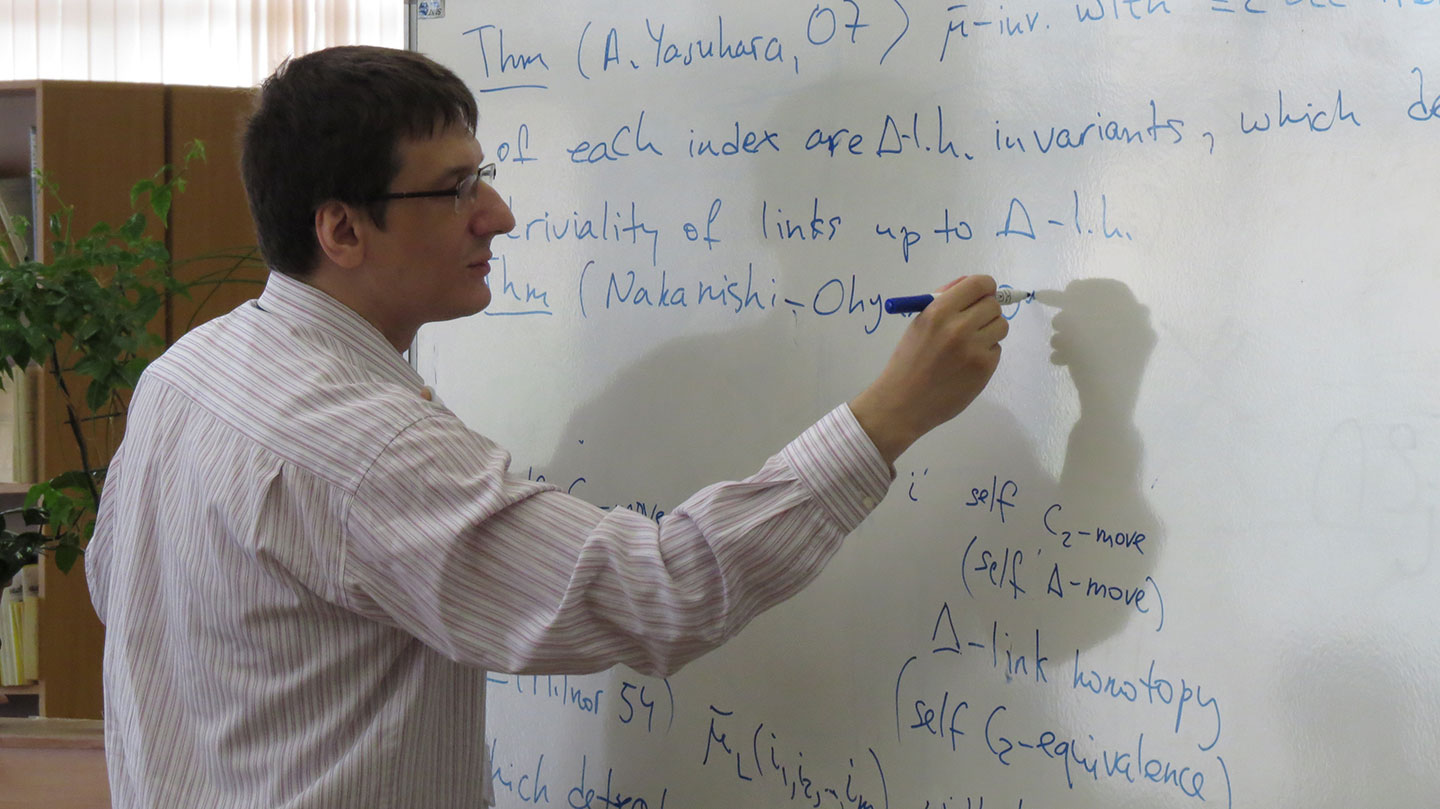 Thm (A. Yasuhara, 07) μ̄-inv. with
of each index are Δ-l.h. invariants, which
triviality of links up to Δ-l.h.
Thm (Nakanishi - Ohy
C -move
self C₂-move
(self Δ-move)
Δ-link homotopy
(self C₂-equivalence)
(Milnor 54)
μ̄_L(i₁, i₂, .., i_m)
which detect